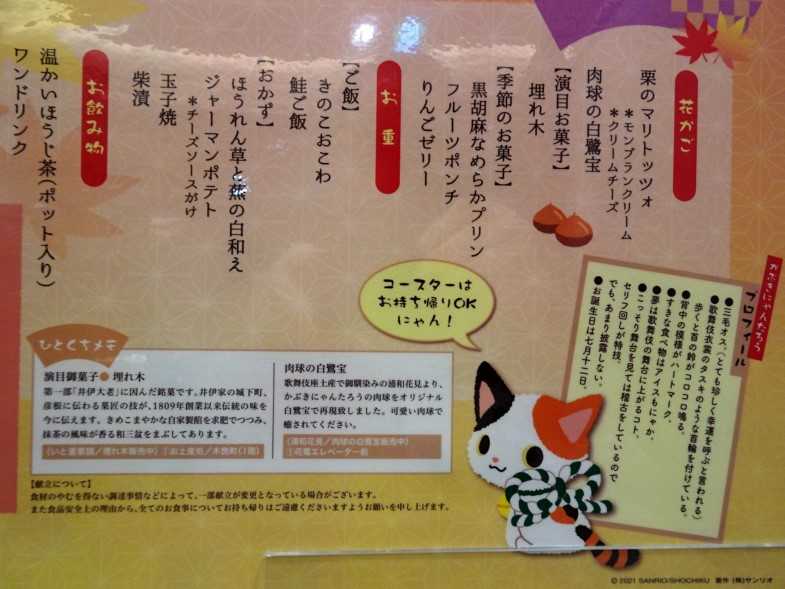 花かご
栗のマリトッツォ
＊モンブランクリーム
＊クリームチーズ
肉球の白鷺宝
【演目お菓子】
埋れ木
【季節のお菓子】
黒胡麻なめらかプリン
フルーツポンチ
りんごゼリー
お重
【ご飯】
きのこおこわ
鮭ご飯
【おかず】
ほうれん草と蕪の白和え
ジャーマンポテト
＊チーズソースがけ
玉子焼
柴漬
お飲み物
温かいほうじ茶（ポット入り）
ワンドリンク
コースターは
お持ち帰りOK
にゃん！
かぶきにゃんたろう
プロフィール
●三毛オス。（とても珍しく幸運を呼ぶと言われる）
●歌舞伎衣裳のタスキのような首輪を付けている。
歩くと首の鈴がコロコロ鳴る。
●背中の模様がハートマーク。
●すきな食べ物はアイスもにゃか。
●夢は歌舞伎の舞台に上がるコト。
●こっそり舞台を見ては稽古をしているので
セリフ回しが特技。
でも、あまり披露しない。
●お誕生日は七月十二日。
ひとくちメモ
演目御菓子●埋れ木
第一部「井伊大老」に因んだ銘菓です。井伊家の城下町、
彦根に伝わる菓匠の技が、1809年創業以来伝統の味を
今に伝えます。きめこまやかな自家製餡を求肥でつつみ、
抹茶の風味が香る和三盆をまぶしてあります。
肉球の白鷺宝
歌舞伎座土産で御馴染みの浦和花見より、
かぶきにゃんたろうの肉球をオリジナル
白鷺宝で再現致しました。可愛い肉球で
癒されてください。
【献立について】
食材のやむを得ない調達事情などによって、一部献立が変更となっている場合がございます。
また食品安全上の理由から、全てのお食事についてお持ち帰りはご遠慮くださいますようお願いを申し上げます。
© 2021 SANRIO/SHOCHIKU 著作（株）サンリオ